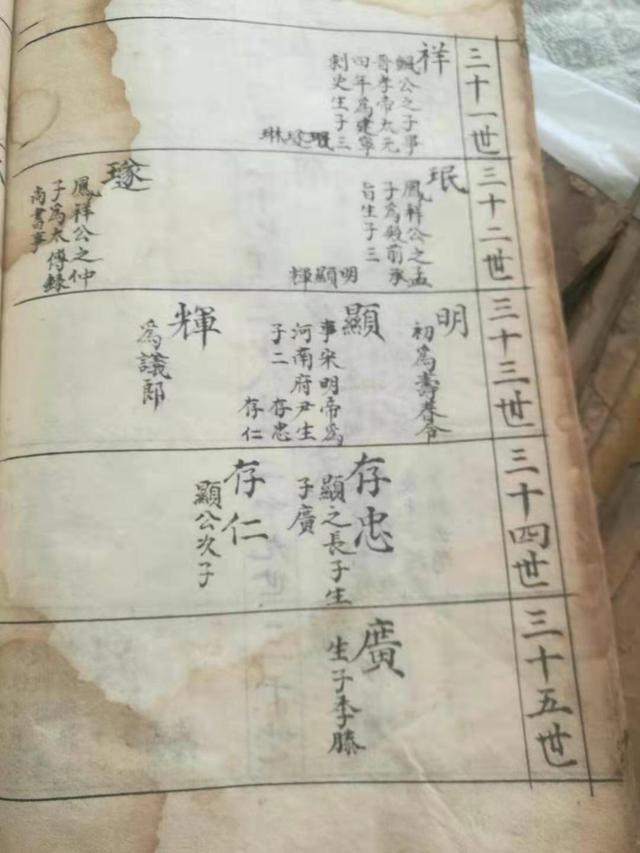 三十一世
祥
公之子事
晉孝帝太元
四年為建寧
刺史生子三
珉 璲 琳
三十二世
珉
鳳祥公之孟
子為殿前承
旨生子三
明顯輝
璲
鳳祥公之仲
子為太傅錄
尚書事
三十三世
明
初為壽春令
顯
事宋明帝為
河南府尹生
子二 存忠
存仁
輝
為議郎
三十四世
存忠
顯之長子生
子廣
存仁
顯公次子
三十五世
廣
生子季滕